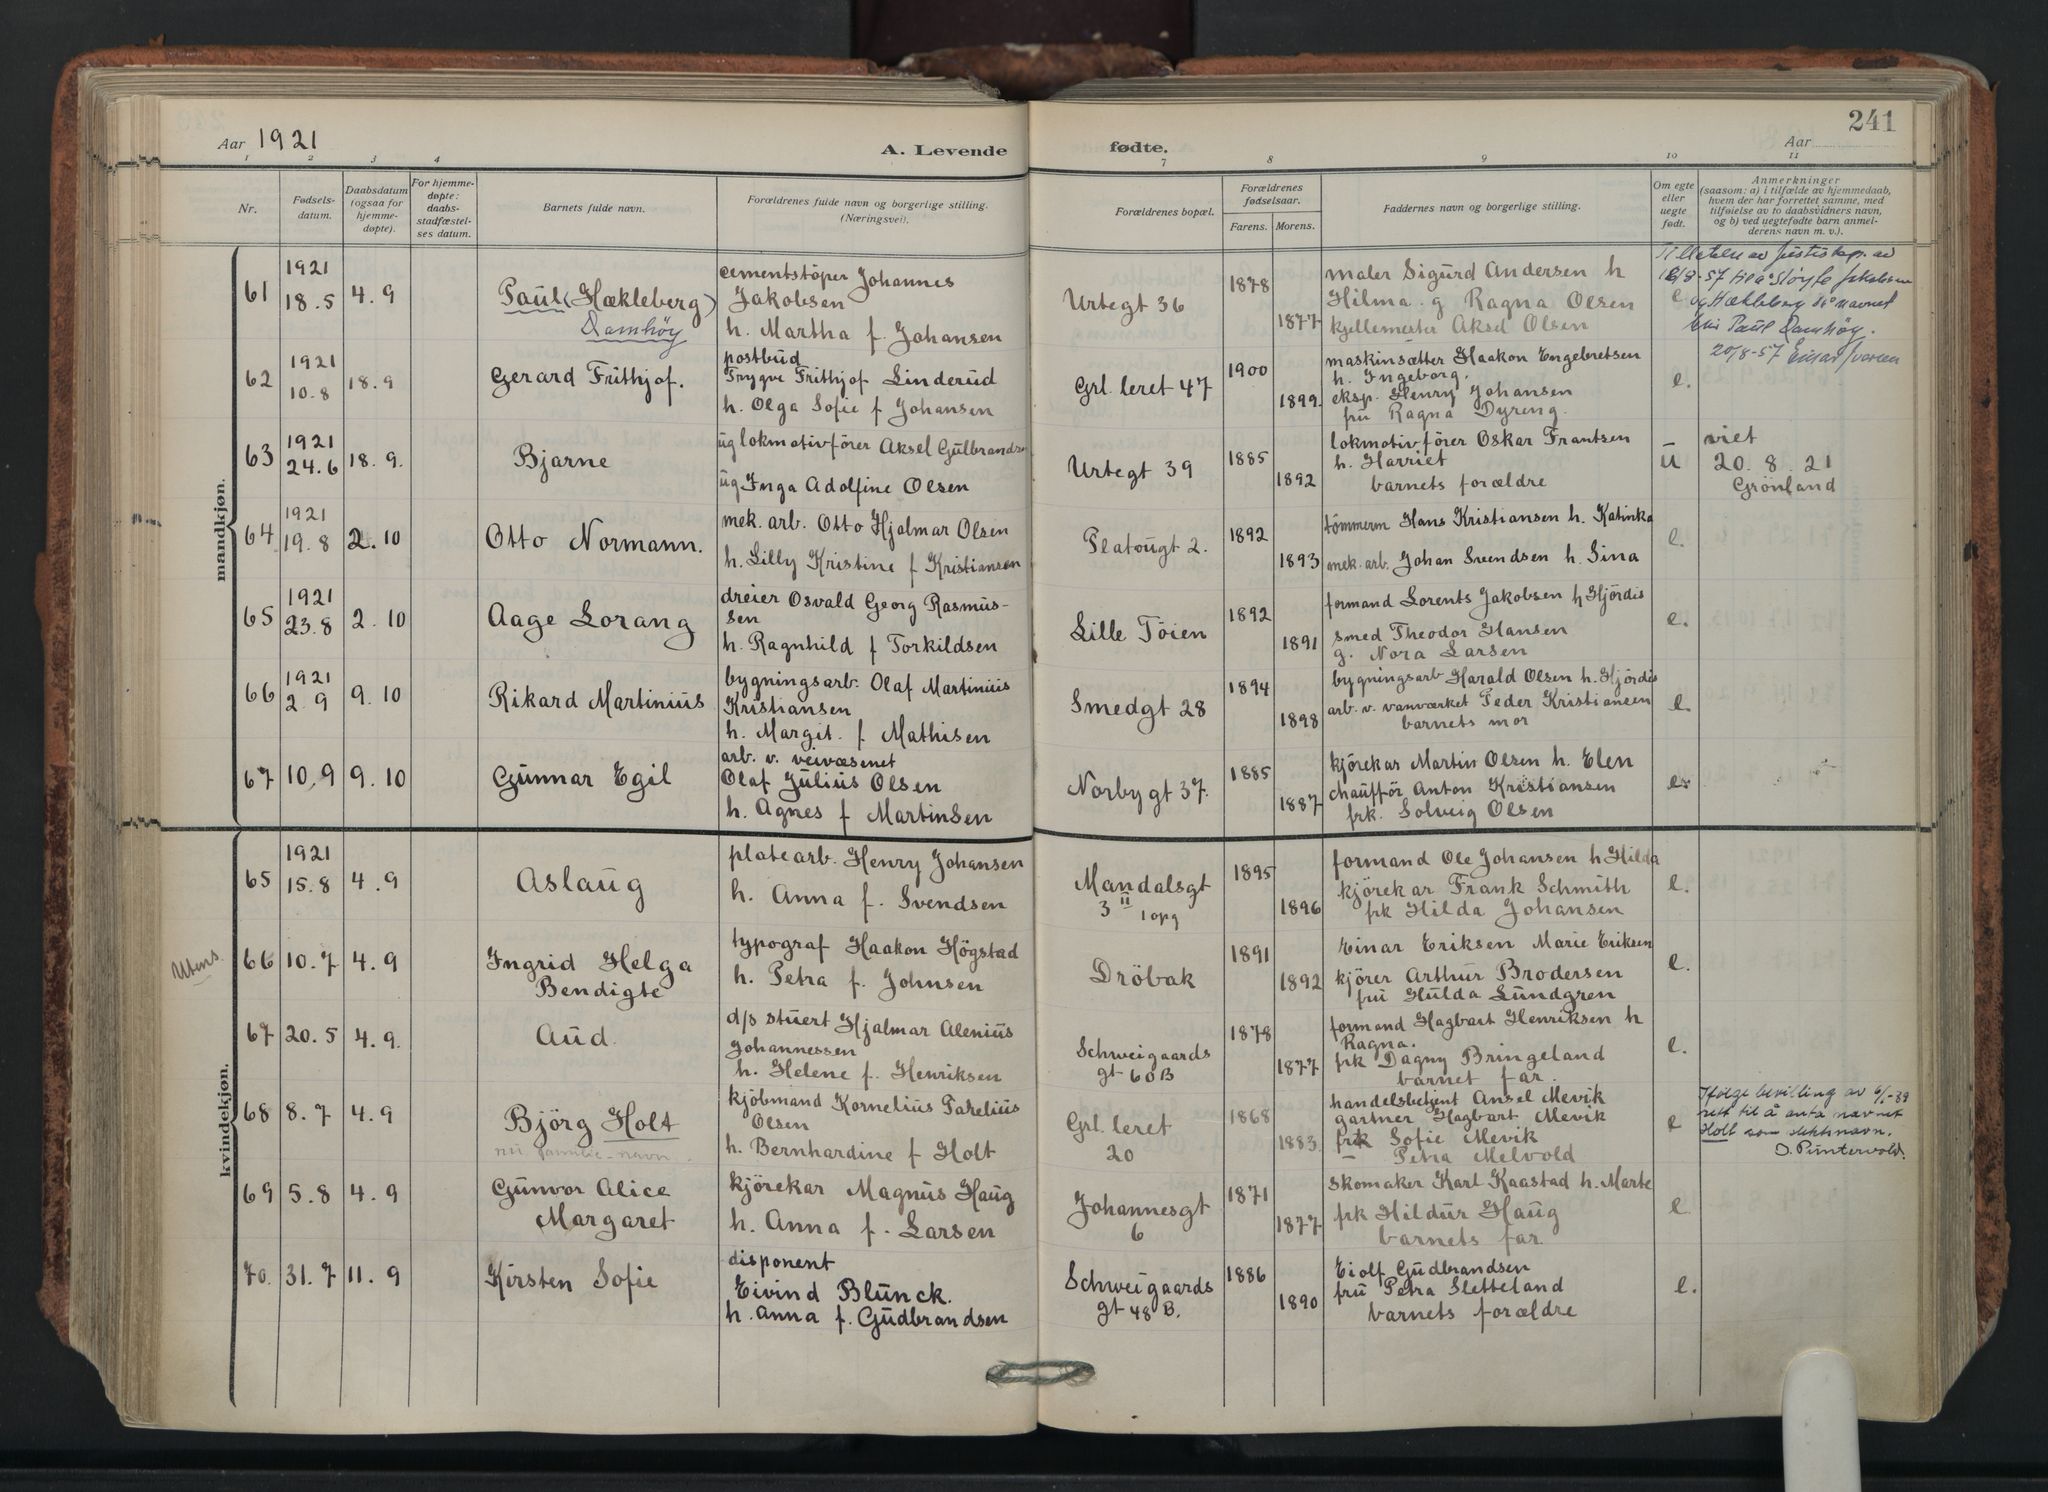 241
Aar 1921
A. Levende
fødte.
Aar
1 2 3 4 7 8 9 10 11
Nr.
Fødsels-
datum.
Daabsdatum
(ogsaa for
hjemme-
døpte).
For hjemme-
døpte:
daabs-
stadfæstel-
ses datum.
Barnets fulde navn.
Forældrenes fulde navn og borgerlige stilling.
(Næringsvei).
Forældrenes bopæl.
Forældrenes
fødselsaar.
Farens. Morens.
Faddernes navn og borgerlige stilling.
Om egte
eller
uegte
født.
Anmerkninger
(saasom: a) i tilfælde av hjemmedaab,
hvem der har forrettet samme, med
tilføielse av to daabsvidners navn,
og b) ved uegtefødte barn anmel-
derens navn m. v.).
mandkjøn.
61
1921
18.5
4.9
Paul (Hækleberg)
Damhöy
cementstöper Johannes
Jakobsen
h. Martha f. Johansen
Urtegt 36
1878
1877
maler Sigurd Andersen h
Hilma. g Ragna Olsen
kjellemester Aksel Olsen
e
av
og Hækleberg navnet
Paul Damhøy.
20/8-57
62
1921
10.8
18.9
Gerard Frithjof.
postbud
Trygve Frithjof Linderud
h. Olga Sofie f Johansen
Grl. leret 47
1900
1899.
maskinsætter Haakon Engebretsen
h. Ingeborg.
eksp. Henry Johansen
fru Ragna Dyreng.
e.
63
1921
24.6
18.9.
Bjarne
ug lokomotivförer Aksel Gulbrandsen
ug Inga Adolfine Olsen
Urtegt 39
1885
1892
lokmotivförer Oskar Frantsen
h. Harriet
barnets forældre
u
viet
20.8.21
Grönland
64
1921
19.8
2.10
Otto Normann.
mek. arb. Otto Hjalmar Olsen
h. Lilly Kristine f Kristiansen
Platougt 2.
1892
1893
tömmerm Hans Kristiansen h. Katinka
mek. arb. Johan Svendsen h. Sina
e.
65
1921
23.8
2.10
Aage Lorang
dreier Osvald Georg Rasmus-
sen
h. Ragnhild f Torkildsen
Lille Töien
1892
1891
formand Lorents Jakobsen h Hjördis
smed Theodor Hansen
g. Nora Larsen
e.
66
1921
2.9
9.10
Rikard Martinius
bygningsarb. Olaf Martinius
Kristiansen
h. Margit. f Mathisen
Smedgt 28
1894
1898
bygningsarb Harald Olsen h. Hjördis
arb. v. vanværket Peder Kristiansen
barnets mor
e.
67
10.9
9.10
Gunnar Egil
arb. v. veivæsenet
Olaf Julius Olsen
h. Agnes f Martinsen
Norbygt 37.
1885
1887
kjörekar Martin Olsen h. Elen
chaufför Anton Kristiansen
frk. Solveig Olsen
e.
kvindekjøn.
65
1921
15.8
4.9
Aslaug
platearb. Henry Johansen
h. Anna f. Svendsen
Mandalsgt
3 II 1 opg
1895
1896
formand Ole Johansen h Hilda
kjörekar Frank Schmith
frk Hilda Johansen
e.
Utens.
66
10.7
4.9
Ingrid Helga
Bendigte
typograf Haakon Högstad
h. Petra f. Johnsen
Dröbak
1891
1892
Einar Eriksen Marie Eriksen
kjörer Arthur Brodersen
fru Hulda Lundgren
e.
67
20.5
4.9.
Aud.
d/s stuert Hjalmar Alenius
Johannessen
h. Helene f. Henriksen
Schweigaards
gt 60B
1878
1877
formand Hagbart Henriksen h
Ragna.
frk Dagny Bringeland
barnet far.
e.
68
8.7
4.9
Björg Holt
nu familie-navn.
kjöbmand Kornelius Takelius
Olsen
h. Bernhardine f Holt
Grl. leret
20
1868
1883.
handelsbetjent Ansel Mevik
gartner Hagbart Mevik
frk Sofie Mevik
— Petra Melvold
e
Ifølge bevilling av 6/1-39
rett til å anta navnet
Holt som slektsnavn.
O. Puntervold.
69
5.8
4.9
Gunvor Alice
Margaret
kjörekar Magnus Haug
h. Anna f. Larsen
Johannesgt
6
1871
1877
skomaker Karl Kaastad h. Marte
frk Hildur Haug
barnets far
e.
70.
31.7
11.9
Kirsten Sofie
disponent
Eivind Blunck.
h. Anna f. Gudbrandsen
Schweigaards
gt 48B.
1886
1890
Eiolf Gudbrandsen
fru Petra Sletteland
barnets forældre
e.